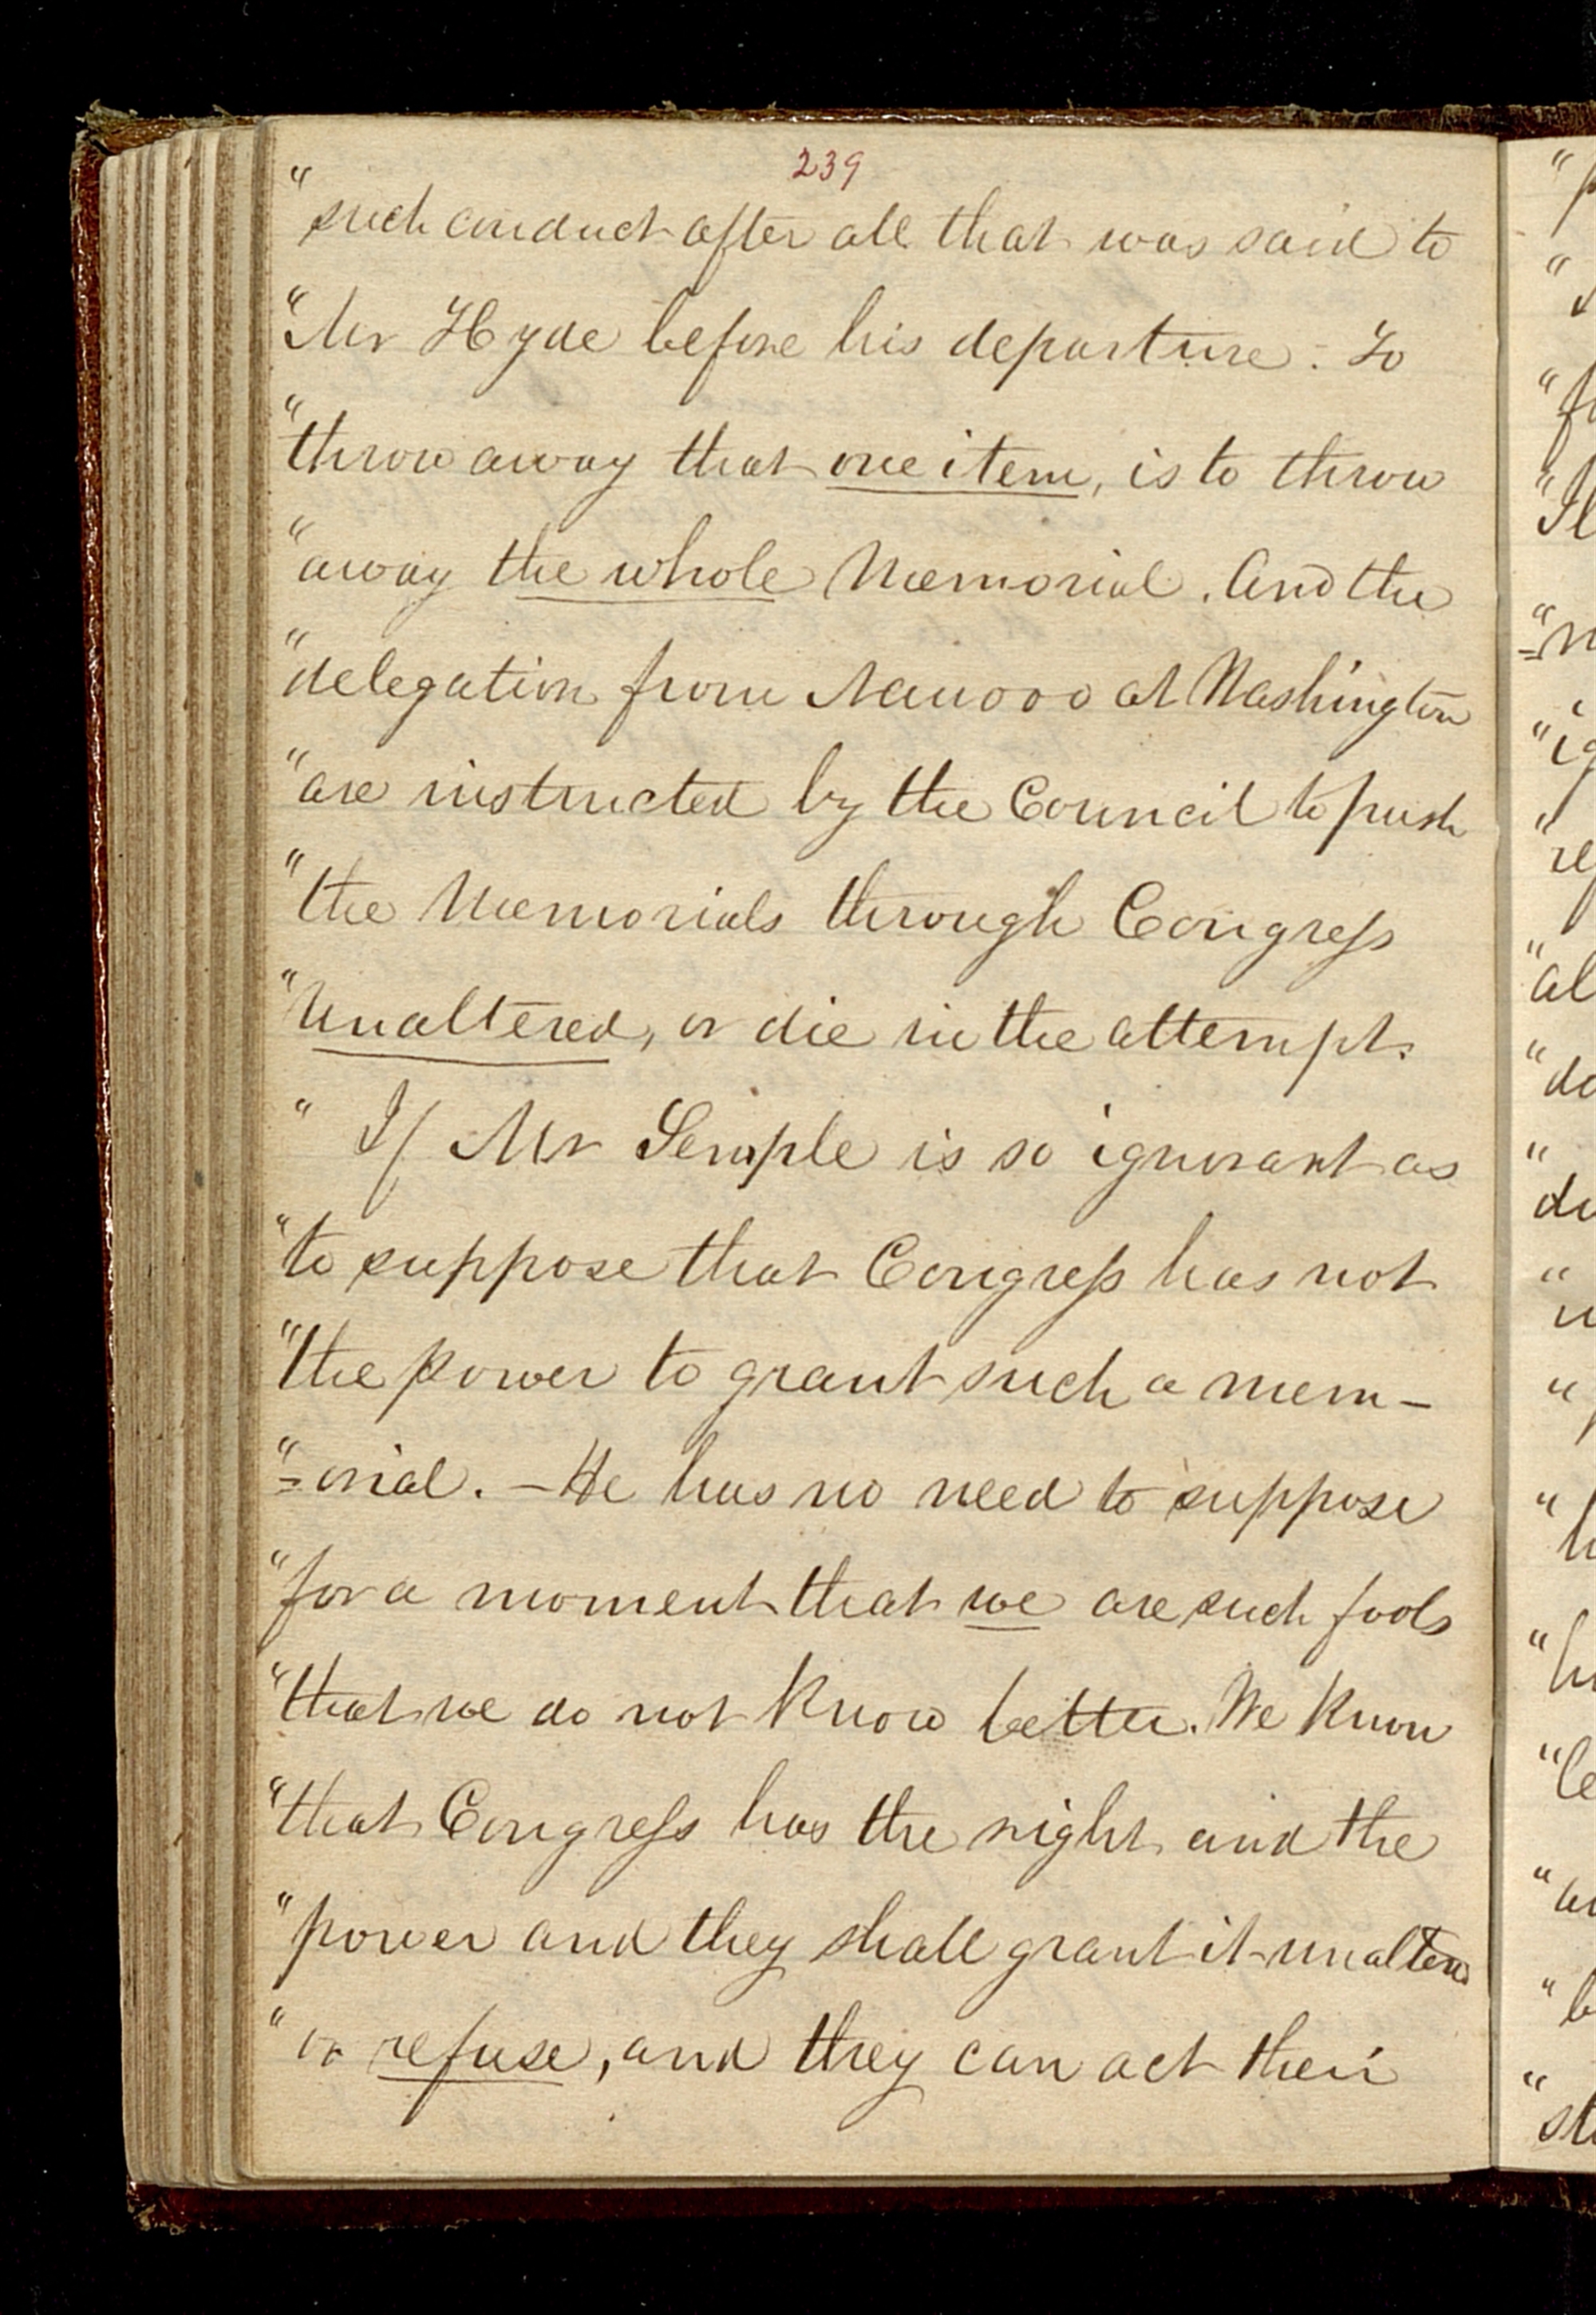 239
"such conduct after all that was said to
"Mr Hyde before his departure. To
"throw away that one item, is to throw
"away the whole Memorial. And the
"delegation from Nauvoo at Washington
"are instructed by the Council to push
"the Memorials through Congress
"Unaltered, or die in the attempt.
" If Mr Semple is so ignorant as
"to suppose that Congress has not
"the power to grant such a mem-
"=orial. - He has no need to suppose
"for a moment that we are such fools
"that we do not know better. We know
"that Congress has the right and the
"power and they shall grant it unaltered
"or refuse, and they can act their